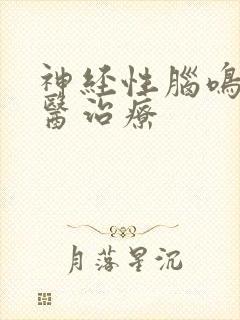 神经性腦鳴
醫治療
月落星沉